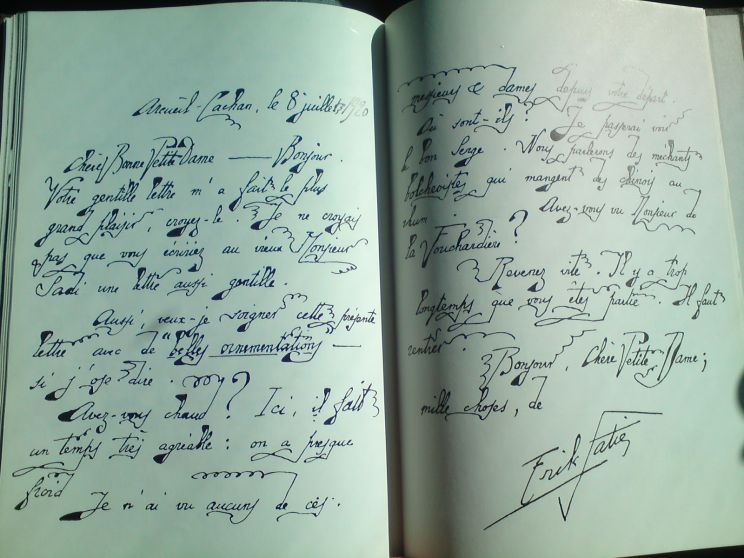 Arcueil-Cachan, le 8 juillet 1920
Chère Bonne Petite Dame — Bonjour.
Votre gentille lettre m'a fait le plus
grand plaisir, croyez-le. Je ne croyais
pas que vous écririez au vieux Monsieur
Sadi une lettre aussi gentille.
Aussi, veux-je soigner cette présente
lettre avec de "belles ornementations" —
si j'ose dire.
Avez-vous chaud? Ici, il fait
un temps très agréable: on a presque
froid
Je n'ai vu aucuns de ces
messieurs & dames depuis votre départ.
Où sont-ils? Je passerai voir
le bon Serge. Nous parlerons des méchants
bolchevistes qui mangent des chinois au
rhum.
Avez-vous vu Monsieur de
la Fouchardière?
Revenez vite. Il y a trop
longtemps que vous êtes partie. Il faut
rentrer.
Bonjour, Chère Petite Dame;
mille choses, de
Erik Satie